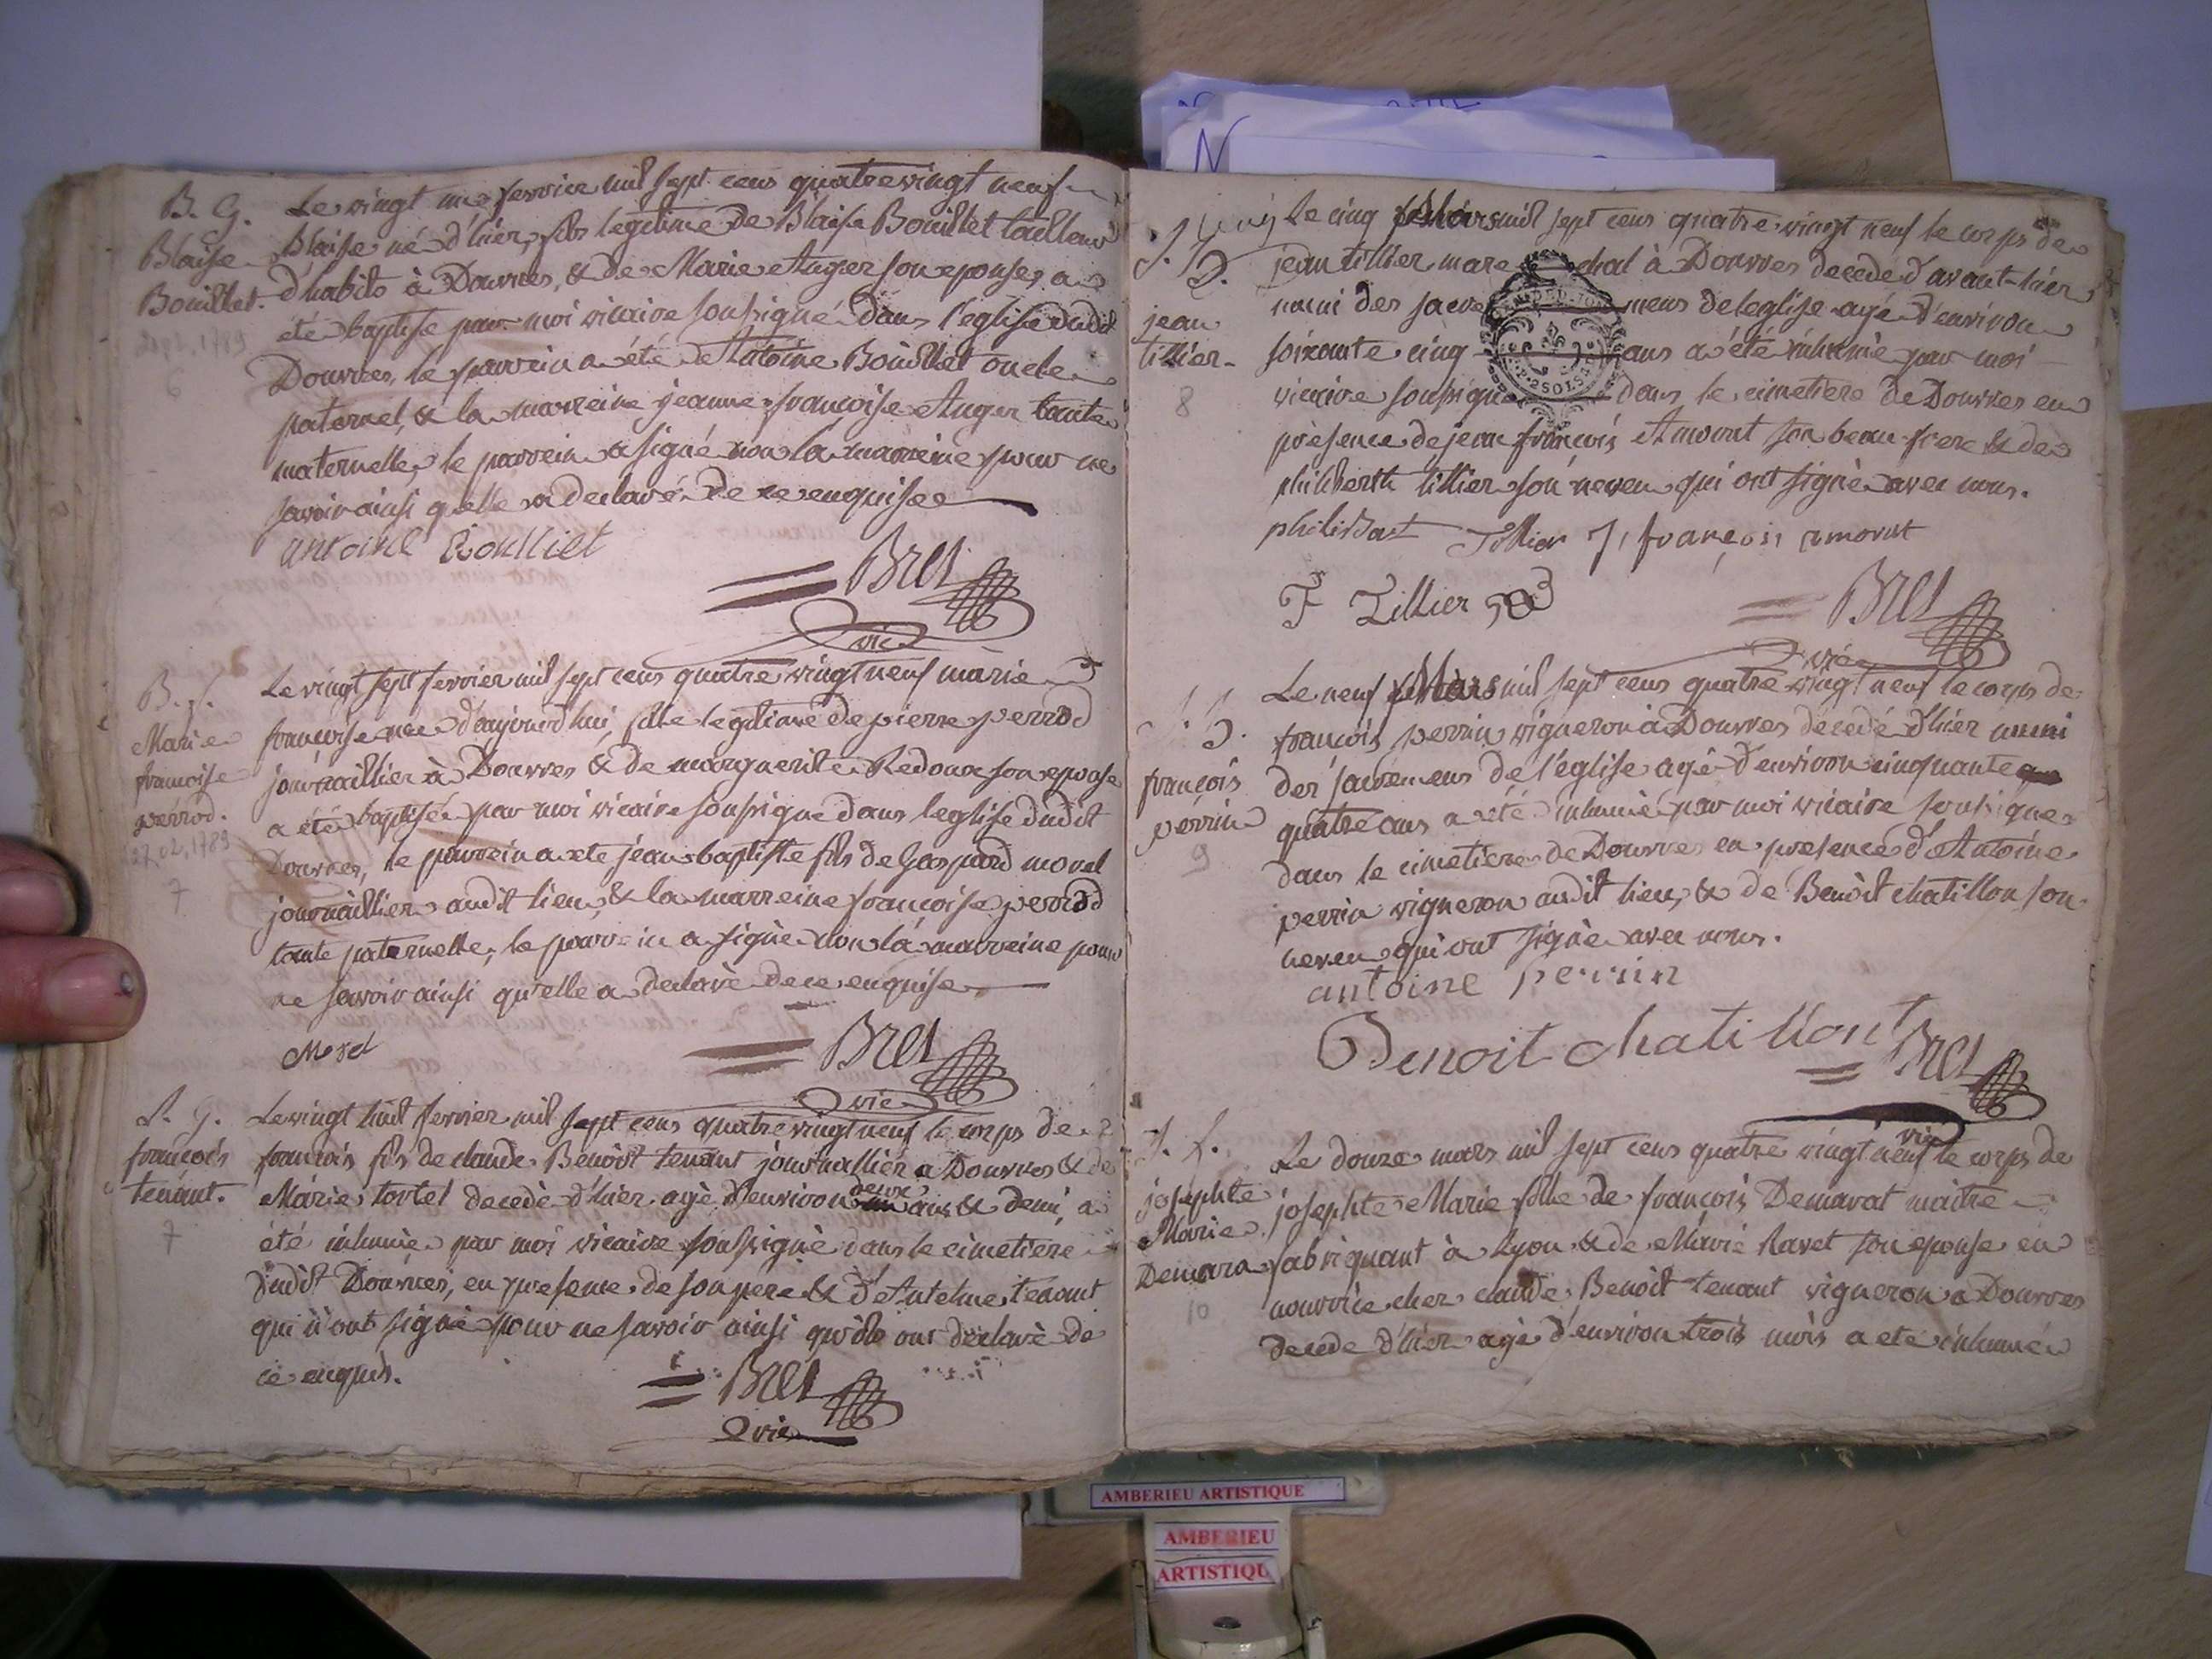 B. G.
Blaise
Bouillet.
Le vingt un fevrier mil sept cens quatrevingt neuf
Blaise né d'hier, fils legitime de Blaise Bouillet tailleur
d'habits à Douvres, & de Marie Auger son epouse, a
été baptisé par moi vicaire soussigné dans l'eglise dudit
Douvres, le parrein a été Antoine Bouillet oncle
paternel, & la marreine jeanne françoise Auger tante
maternelle, le parrein a signé non la marreine pour ne
savoir ainsi qu'elle a declaré de ce enquise
antoine Bouillet
Bret
vic
B. f.
Marie
françoise
perrod.
27.02.1789
7
Le vingt sept fevrier mil sept cens quatre vingt neuf marie
françoise née d'aujourd'hui, fille legitime de pierre perrod
journaillier à Douvres & de marguerite Redoux son epouse
a été baptisée par moi vicaire soussigné dans l'eglise dudit
Douvres, le parrein a été jean baptiste fils de Gaspard morel
journaillier audit lieu, & la marreine françoise perrod
tante paternelle, le parrein a signé non la marreine pour
ne savoir ainsi qu'elle a declaré de ce enquise
Morel
Bret
vic
S. G.
françois
tenant.
7
Le vingt huit fevrier mil sept cens quatrevingt neuf le corps de
françois fils de claude Benoit tenant journallier a Douvres & de
Marie tortel decedé d'hier agé d'environ deux ans & demi, a
été inhumé par moi vicaire soussigné dans le cimetiere
dudit Douvres, en presence de son pere & d'Antelme tenant
qui n'ont signé pour ne savoir ainsi qu'ils ont declaré de
ce enquis.
Bret
vic
jean
tillier
8
Le cinq mars mil sept cens quatre vingt neuf le corps de
jean tillier marechal à Douvres decedé d'avant-hier
muni des sacremens de l'eglise agé d'environ
soixante cinq ans a été inhumé par moi
vicaire soussigné dans le cimetiere de Douvres en
présence de jean françois Amorat son beau-frere & de
philiberth tillier son neveu qui ont signé avec nous.
philibert Tillier J. françois amorat
F Tillier
Bret
vic
françois
perrin
9
Le neuf Mars mil sept cens quatre vingt neuf le corps de
françois perrin vigneron à Douvres decedé d'hier muni
des sacremens de l'église agé d'environ cinquante
quatre ans a été inhumé par moi vicaire soussigné
dans le cimetiere de Douvres en presence d'Antoine
perrin vigneron audit lieu, & de Benoit chatillon son
neveu qui ont signé avec nous.
antoine perrin
Benoit chatillon
Bret
vic
S. f.
josephte
Marie
Demara
10
Le douze mars mil sept cens quatre vingt neuf le corps de
josephte Marie fille de françois Demarat maitre
fabriquant à Lyon & de Marie Ravet son epouse en
nourrice chez claude Benoit tenant vigneron a Douvres
decede d'hier agé d'environ trois mois a eté inhumée
AMBERIEU ARTISTIQUE
AMBERIEU
ARTISTIQU